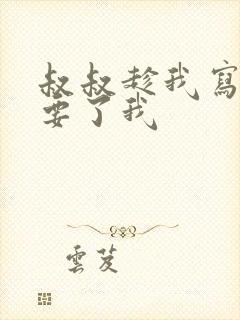 叔叔趁我寫
要了我
雲芨